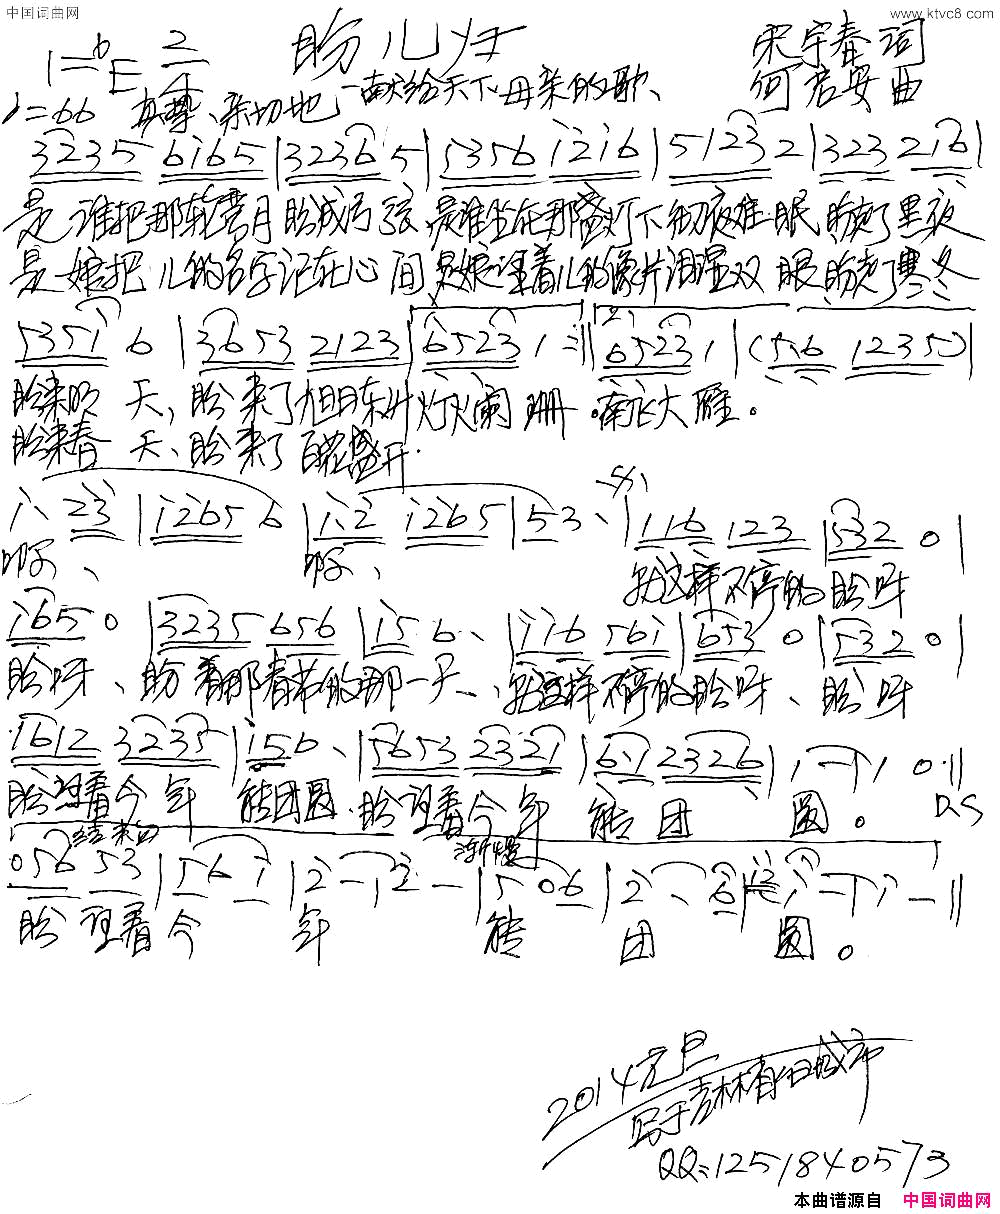 中国词曲网 www.ktvc8.com
盼儿归
宋宇春 词
1=bE 2/4
—献给天下母亲的歌
何君安 曲
♩=66 真挚、亲切地
3235 6165 | 3236 5 | 5356 1216 | 5123 2 | 323 216 |
是谁把那轮弯月盼成弓弦,是谁坐在那盏灯下彻夜难眠,盼走了黑夜
是娘把儿的名字记在心间,是娘望着儿的像片泪湿双眼,盼走了寒冬
5351 6 | 3653 2123 | 6523 1 :|| 6523 1 | (5.6 1235) |
盼来明天,盼来了旭日东升灯火阑珊。南飞大雁。
盼来春天、盼来了百花盛开.
1、23 | 1265 6 | 1、2 1265 | 53、 | 116 123 | 532 0 |
啊、 啊、 就这样不停的盼呀
165 0 | 3235 656 | 15 6、 | 116 561 | 653 0 | 532 0 |
盼呀、盼着那春节的那一天、就这样不停的盼呀、盼呀
1612 3235 | 156、 | 5653 2321 | 6.1 2326 | 1 - | 1 0 ||
盼望着今年能团圆.盼望着今年能团圆。 D.S
结束句 渐慢
056 53 | 56 1 | 2 - | 2 - | 5 06 | 2、6 | 1 - | 1 - ||
盼望着今年能团圆。
2014元旦
写于吉林
QQ:1251840573
本曲谱源自 中国词曲网